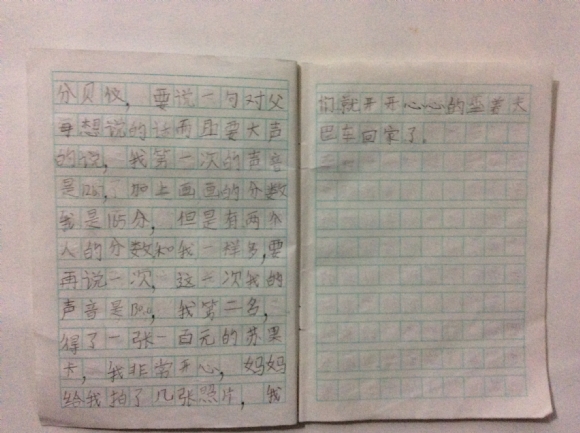 分贝仪，要说一句对父
母想说的话而且要大声
的说，我第一次的声音
是120，加上画画的分数
我是165分，但是有两个
人的分数和我一样多，要
再说一次，这一次我的
声音是130，我第二名，
得了一张一百元的苏果
卡，我非常开心，妈妈
给我拍了几张照片，我
们就开开心心的坐着大
巴车回家了。